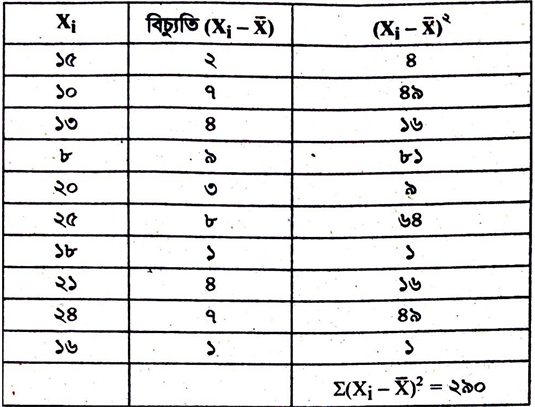 Xi বিচ্যুতি (Xi – X̄) (Xi – X̄)²
১৫ ২ ৪
১০ ৭ ৪৯
১৩ ৪ ১৬
৮ ৯ ৮১
২০ ৩ ৯
২৫ ৮ ৬৪
১৮ ১ ১
২১ ৪ ১৬
২৪ ৭ ৪৯
১৬ ১ ১
Σ(Xi – X̄)² = ২৯০